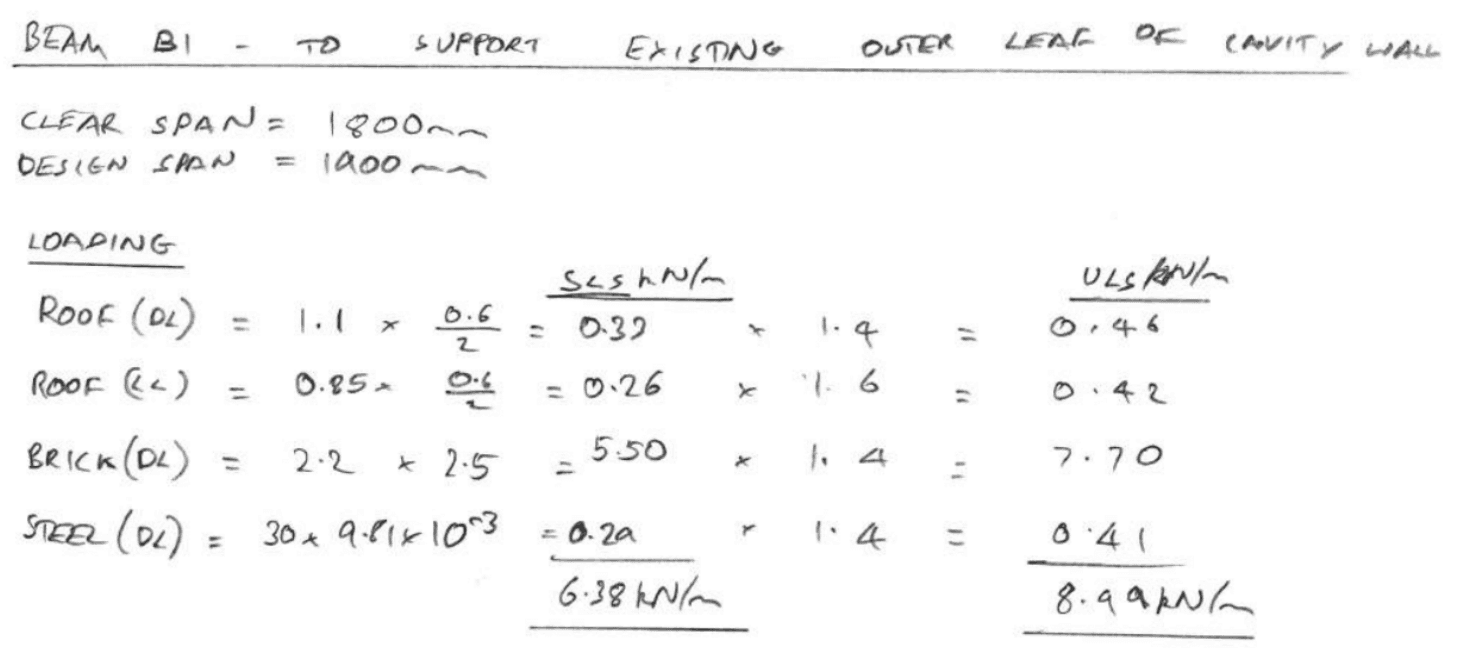 BEAM B1 - TO SUPPORT EXISTING OUTER LEAF OF CAVITY WALL
CLEAR SPAN = 1800mm
DESIGN SPAN = 1900mm
LOADING
SLS kN/m ULS kN/m
ROOF (DL) = 1.1 × 0.6/2 = 0.33 × 1.4 = 0.46
ROOF (LL) = 0.85 × 0.6/2 = 0.26 × 1.6 = 0.42
BRICK (DL) = 2.2 × 2.5 = 5.50 × 1.4 = 7.70
STEEL (DL) = 30 × 9.81 × 10^-3 = 0.29 × 1.4 = 0.41
6.38 kN/m 8.99 kN/m